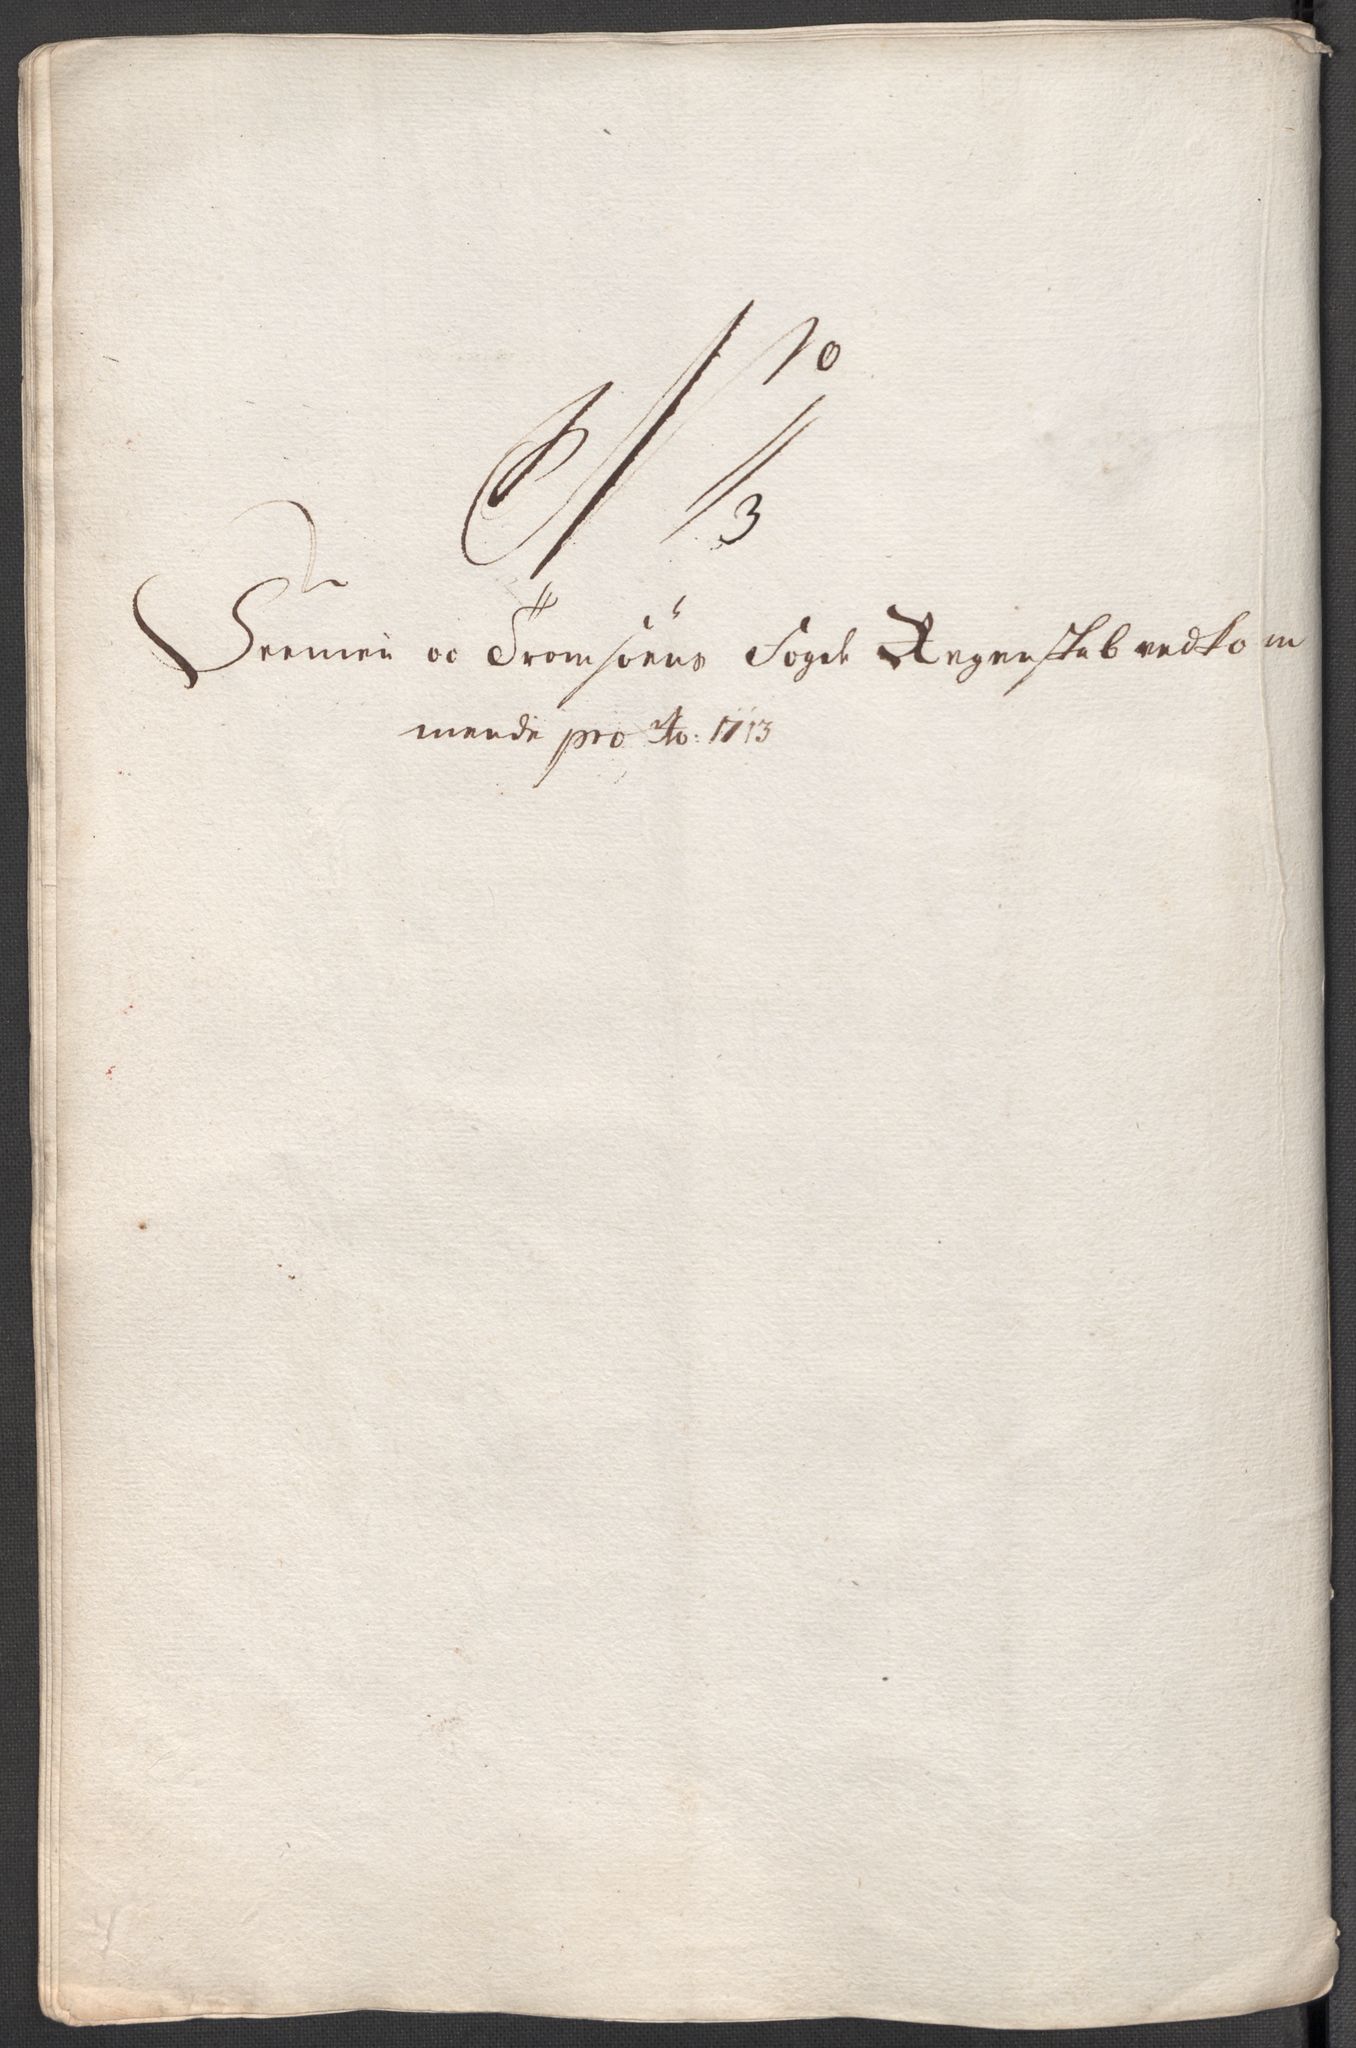 No 10
3
Seenien oc Tromsøens Fogde Regenskab vedkom
mende pro Ao: 1713